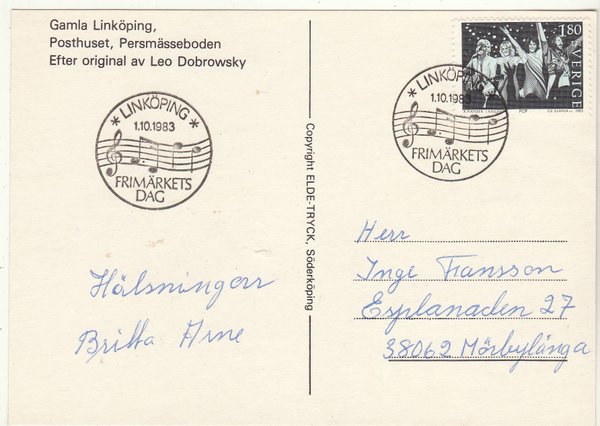 Gamla Linköping,
Posthuset, Persmässeboden
Efter original av Leo Dobrowsky
LINKÖPING
1.10.1983
FRIMÄRKETS
DAG
Hälsningar
Britta Arne
Copyright ELDE-TRYCK, Söderköping
1.80
SVERIGE
POP
LINKÖPING
1.10.1983
FRIMÄRKETS
DAG
Herr
Inge Fransson
Esplanaden 27
38062 Mörbylånga